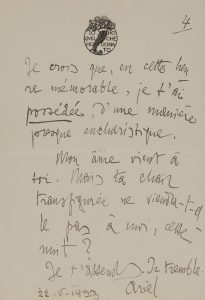 IO HO
QUEL CHE
HO DONA
TO
4
Je crois que, en cette heu
re mémorable, je t'ai
possédée d'une manière
presque eucharistique.
Mon âme vient à
toi. Mais ta chair
transfigurée ne viendra-t-el
le pas à moi, cette
nuit ?
Je t'attends. Je tremble.
Ariel